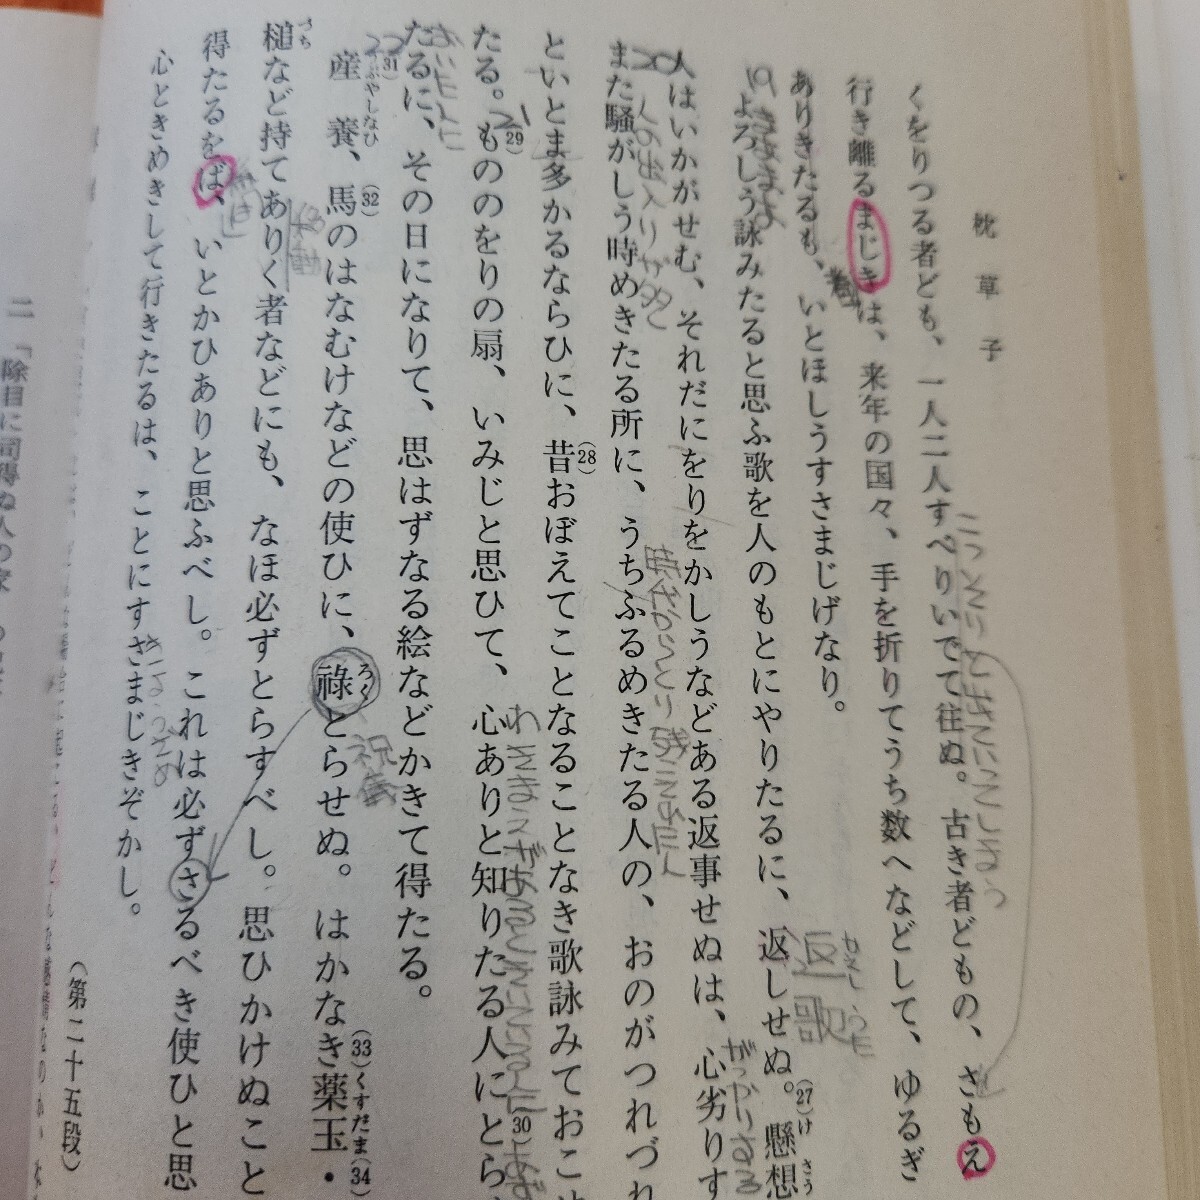 枕草子
くをりつる者ども、一人二人すべりいでて往ぬ。古き者どもの、さもえ
行き離るまじきは、来年の国々、手を折りてうち数へなどして、ゆるぎ
ありきたるも、いとほしうすさまじげなり。
よろしう詠みたると思ふ歌を人のもとにやりたるに、返しせぬ。(27)懸想
人はいかがせむ、それだにをりをかしうなどある返事せぬは、心劣りす
また騒がしう時めきたる所に、うちふるめきたる人の、おのがつれづれ
といとま多かるならひに、昔(28)おぼえてことなることなき歌詠みておこ
たる。もののをりの(29)扇、いみじと思ひて、心ありと知りたる人にとら(30)
たるに、(31)その日になりて、思はずなる絵などかきて得たる。
産養、うぶやしなひ馬のはなむけ(32)などの使ひに、祿ろくとらせぬ。はかなき薬玉(33)くすだま・(34)
槌づちなど持てありく者などにも、なほ必ずとらすべし。思ひかけぬこと
得たるをば、いとかひありと思ふべし。これは必ずさるべき使ひと思
心ときめきして行きたるは、ことにすさまじきぞかし。
(第二十五段)
こっそりと出ていってしまう
返歌
かえしうた
19
きまずまよ
がっかりする
20
人の出入りが多く
時代からとり残された人
21
わきまえがあると
22
おいた人に
祝儀
移動
二「除目に司得ぬ人の家